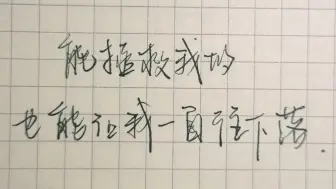 能拯救我的
也能让我一直往下落.